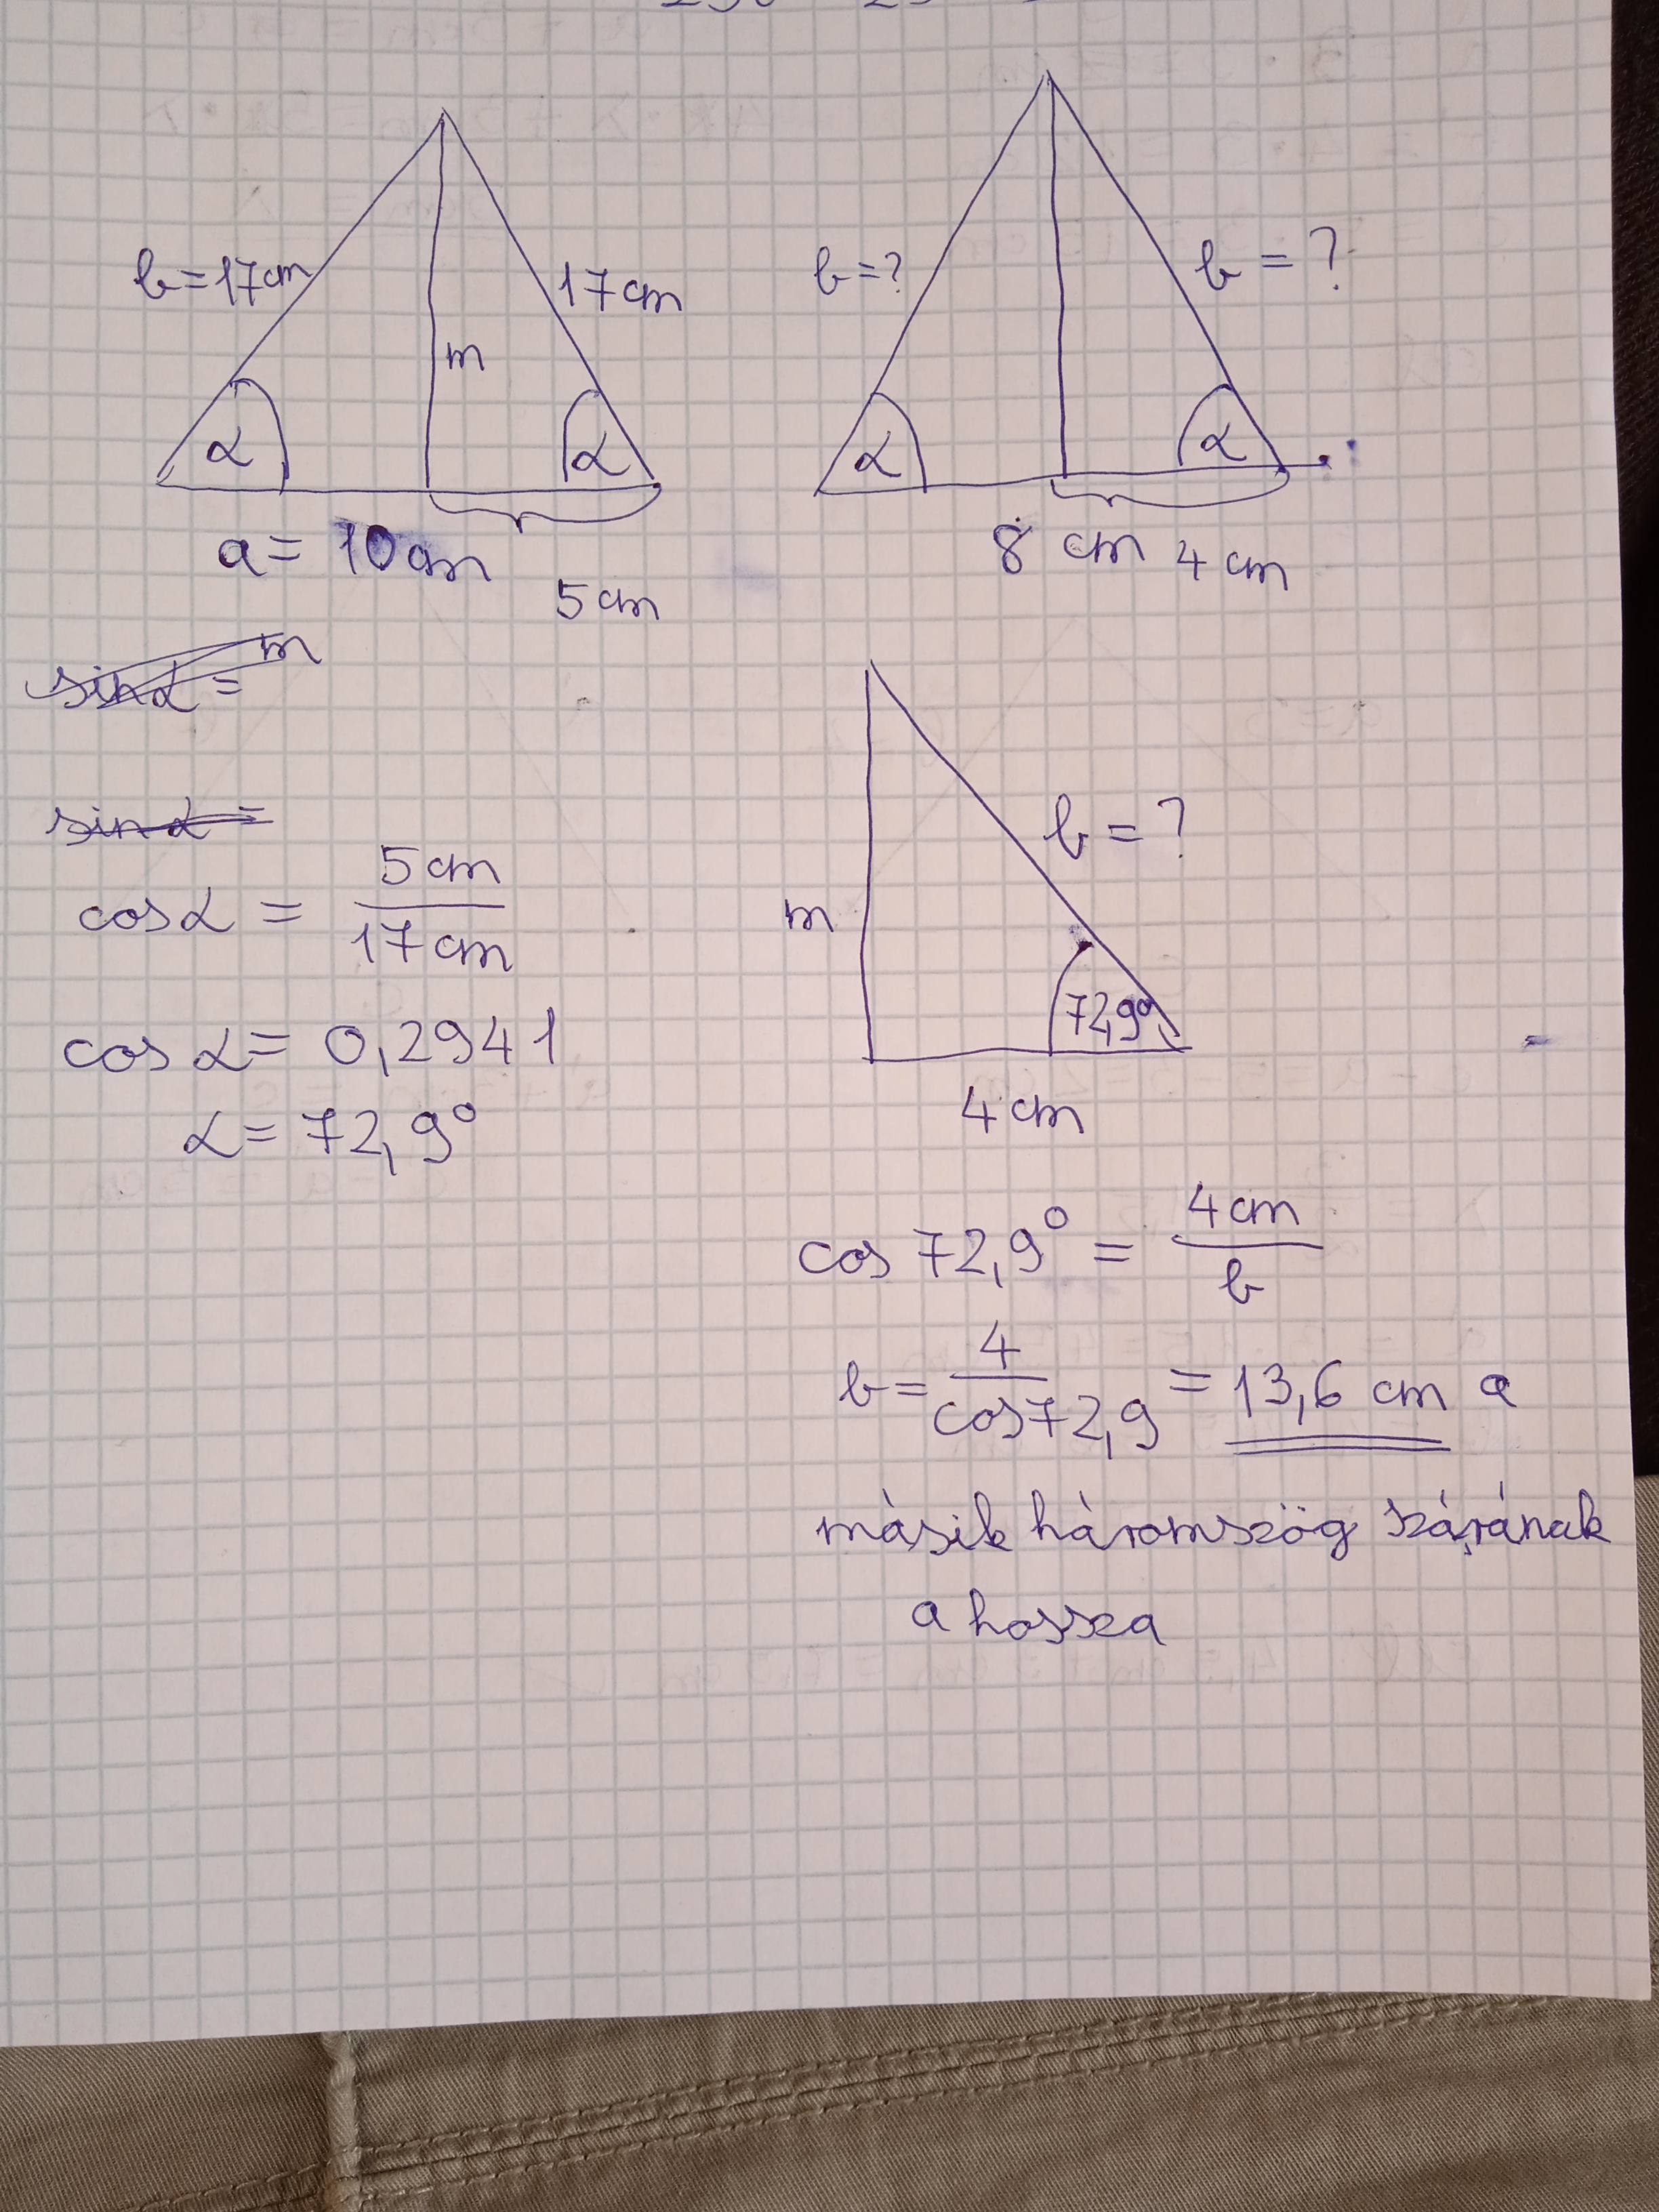 b=17cm
17cm
m
α
α
a= 10cm
5cm
b=?
b=?
α
α
8 cm 4 cm
sinα= m
sinα=
cosα = 5cm / 17cm
cos α= 0,2941
α= 72,9°
m
b=?
72,9°
4cm
cos 72,9° = 4cm / b
b= 4 / cos72,9 = 13,6 cm a
másik háromszög szárának
a hossza